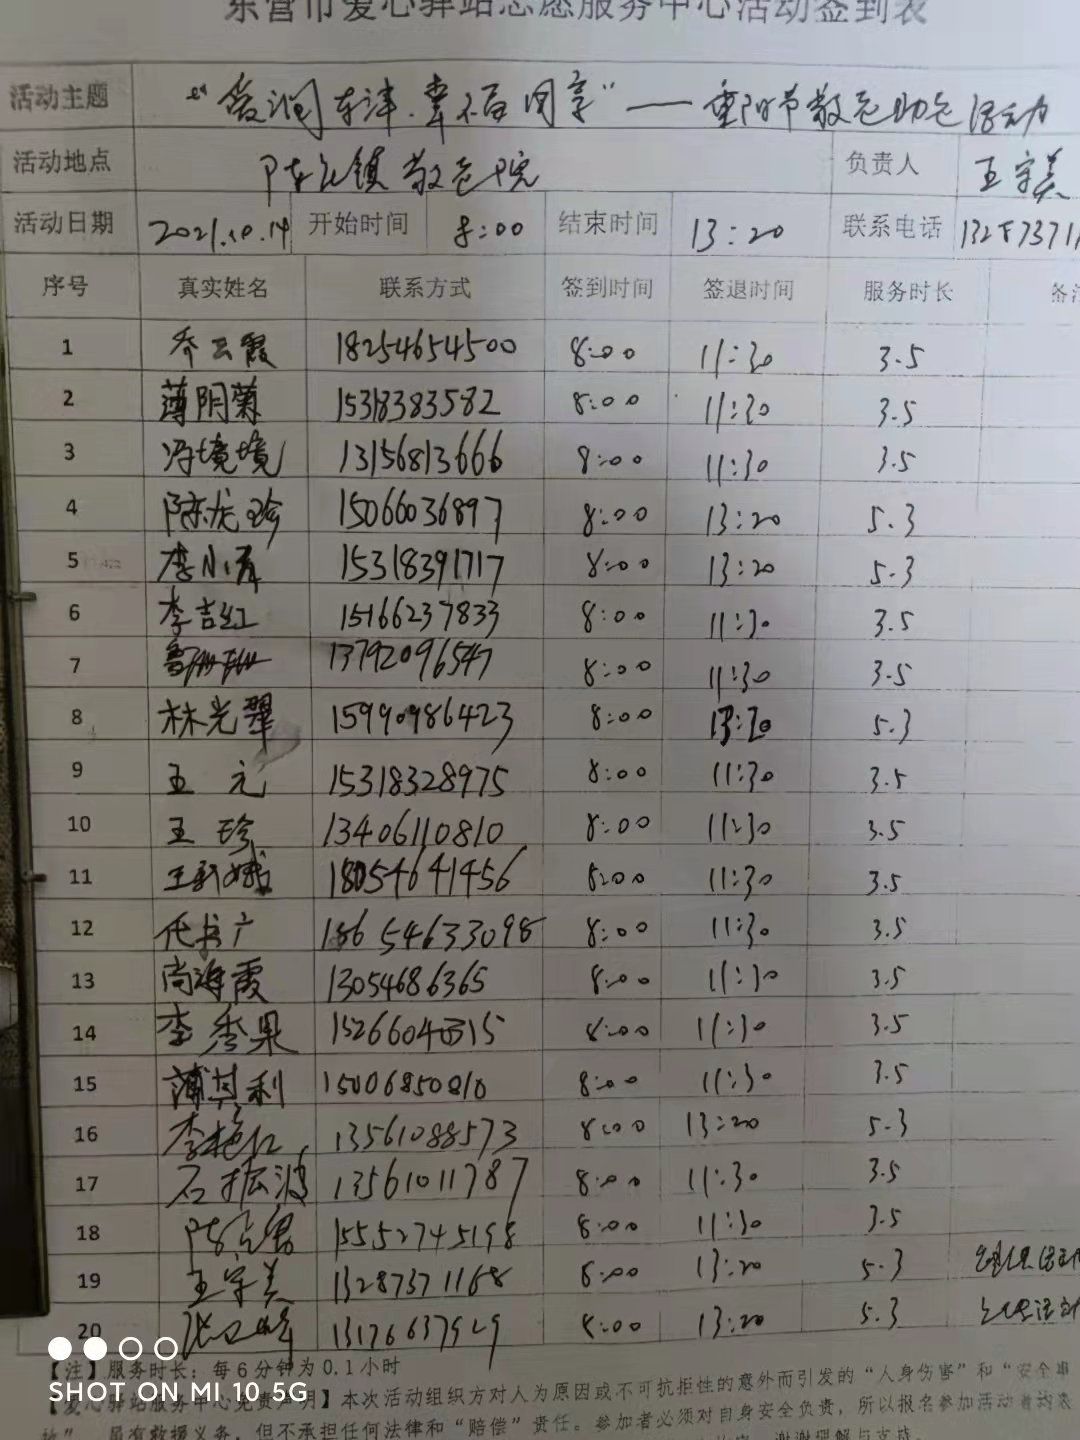 东营市爱心驿站志愿服务中心活动签到表
活动主题 “爱润东津·幸福同享”——重阳节敬老助老活动
活动地点 陈庄镇敬老院 负责人 王宇美
活动日期 2021.10.14 开始时间 8:00 结束时间 13:20 联系电话 132873711
序号 真实姓名 联系方式 签到时间 签退时间 服务时长 备注
1 乔云霞 18254654500 8:00 11:30 3.5
2 薄阴菊 15318383582 8:00 11:30 3.5
3 冯境境 13156813666 8:00 11:30 3.5
4 陈龙珍 15066036897 8:00 13:20 5.3
5 李小青 15318391717 8:00 13:20 5.3
6 李吉红 15166237833 8:00 11:30 3.5
7 13792096547 8:00 11:30 3.5
8 林光翠 15990986423 8:00 13:20 5.3
9 王元 15318328975 8:00 11:30 3.5
10 王珍 13406110810 8:00 11:30 3.5
11 王 娥 18054641456 8:00 11:30 3.5
12 代书广 8:00 11:30 3.5
13 尚海霞 13054686365 8:00 11:30 3.5
14 李秀果 8:00 11:30 3.5
15 蒲其利 15006850810 8:00 11:30 3.5
16 李艳红 13561088573 8:00 13:20 5.3
17 石振波 13561011787 8:00 11:30 3.5
18 陈 君 15552745198 8:00 11:30 3.5
19 王宇美 13287371168 8:00 13:20 5.3
20 张 峰 13176637929 8:00 13:20 5.3
【注】服务时长：每6分钟为0.1小时
【爱心驿站服务中心免责声明】本次活动组织方对人为原因或不可抗拒性的意外而引发的“人身伤害”和“安全事
故”，虽有救援义务，但不承担任何法律和“赔偿”责任。参加者必须对自身安全负责，所以报名参加活动者均表
谢谢理解与支持。
SHOT ON MI 10 5G